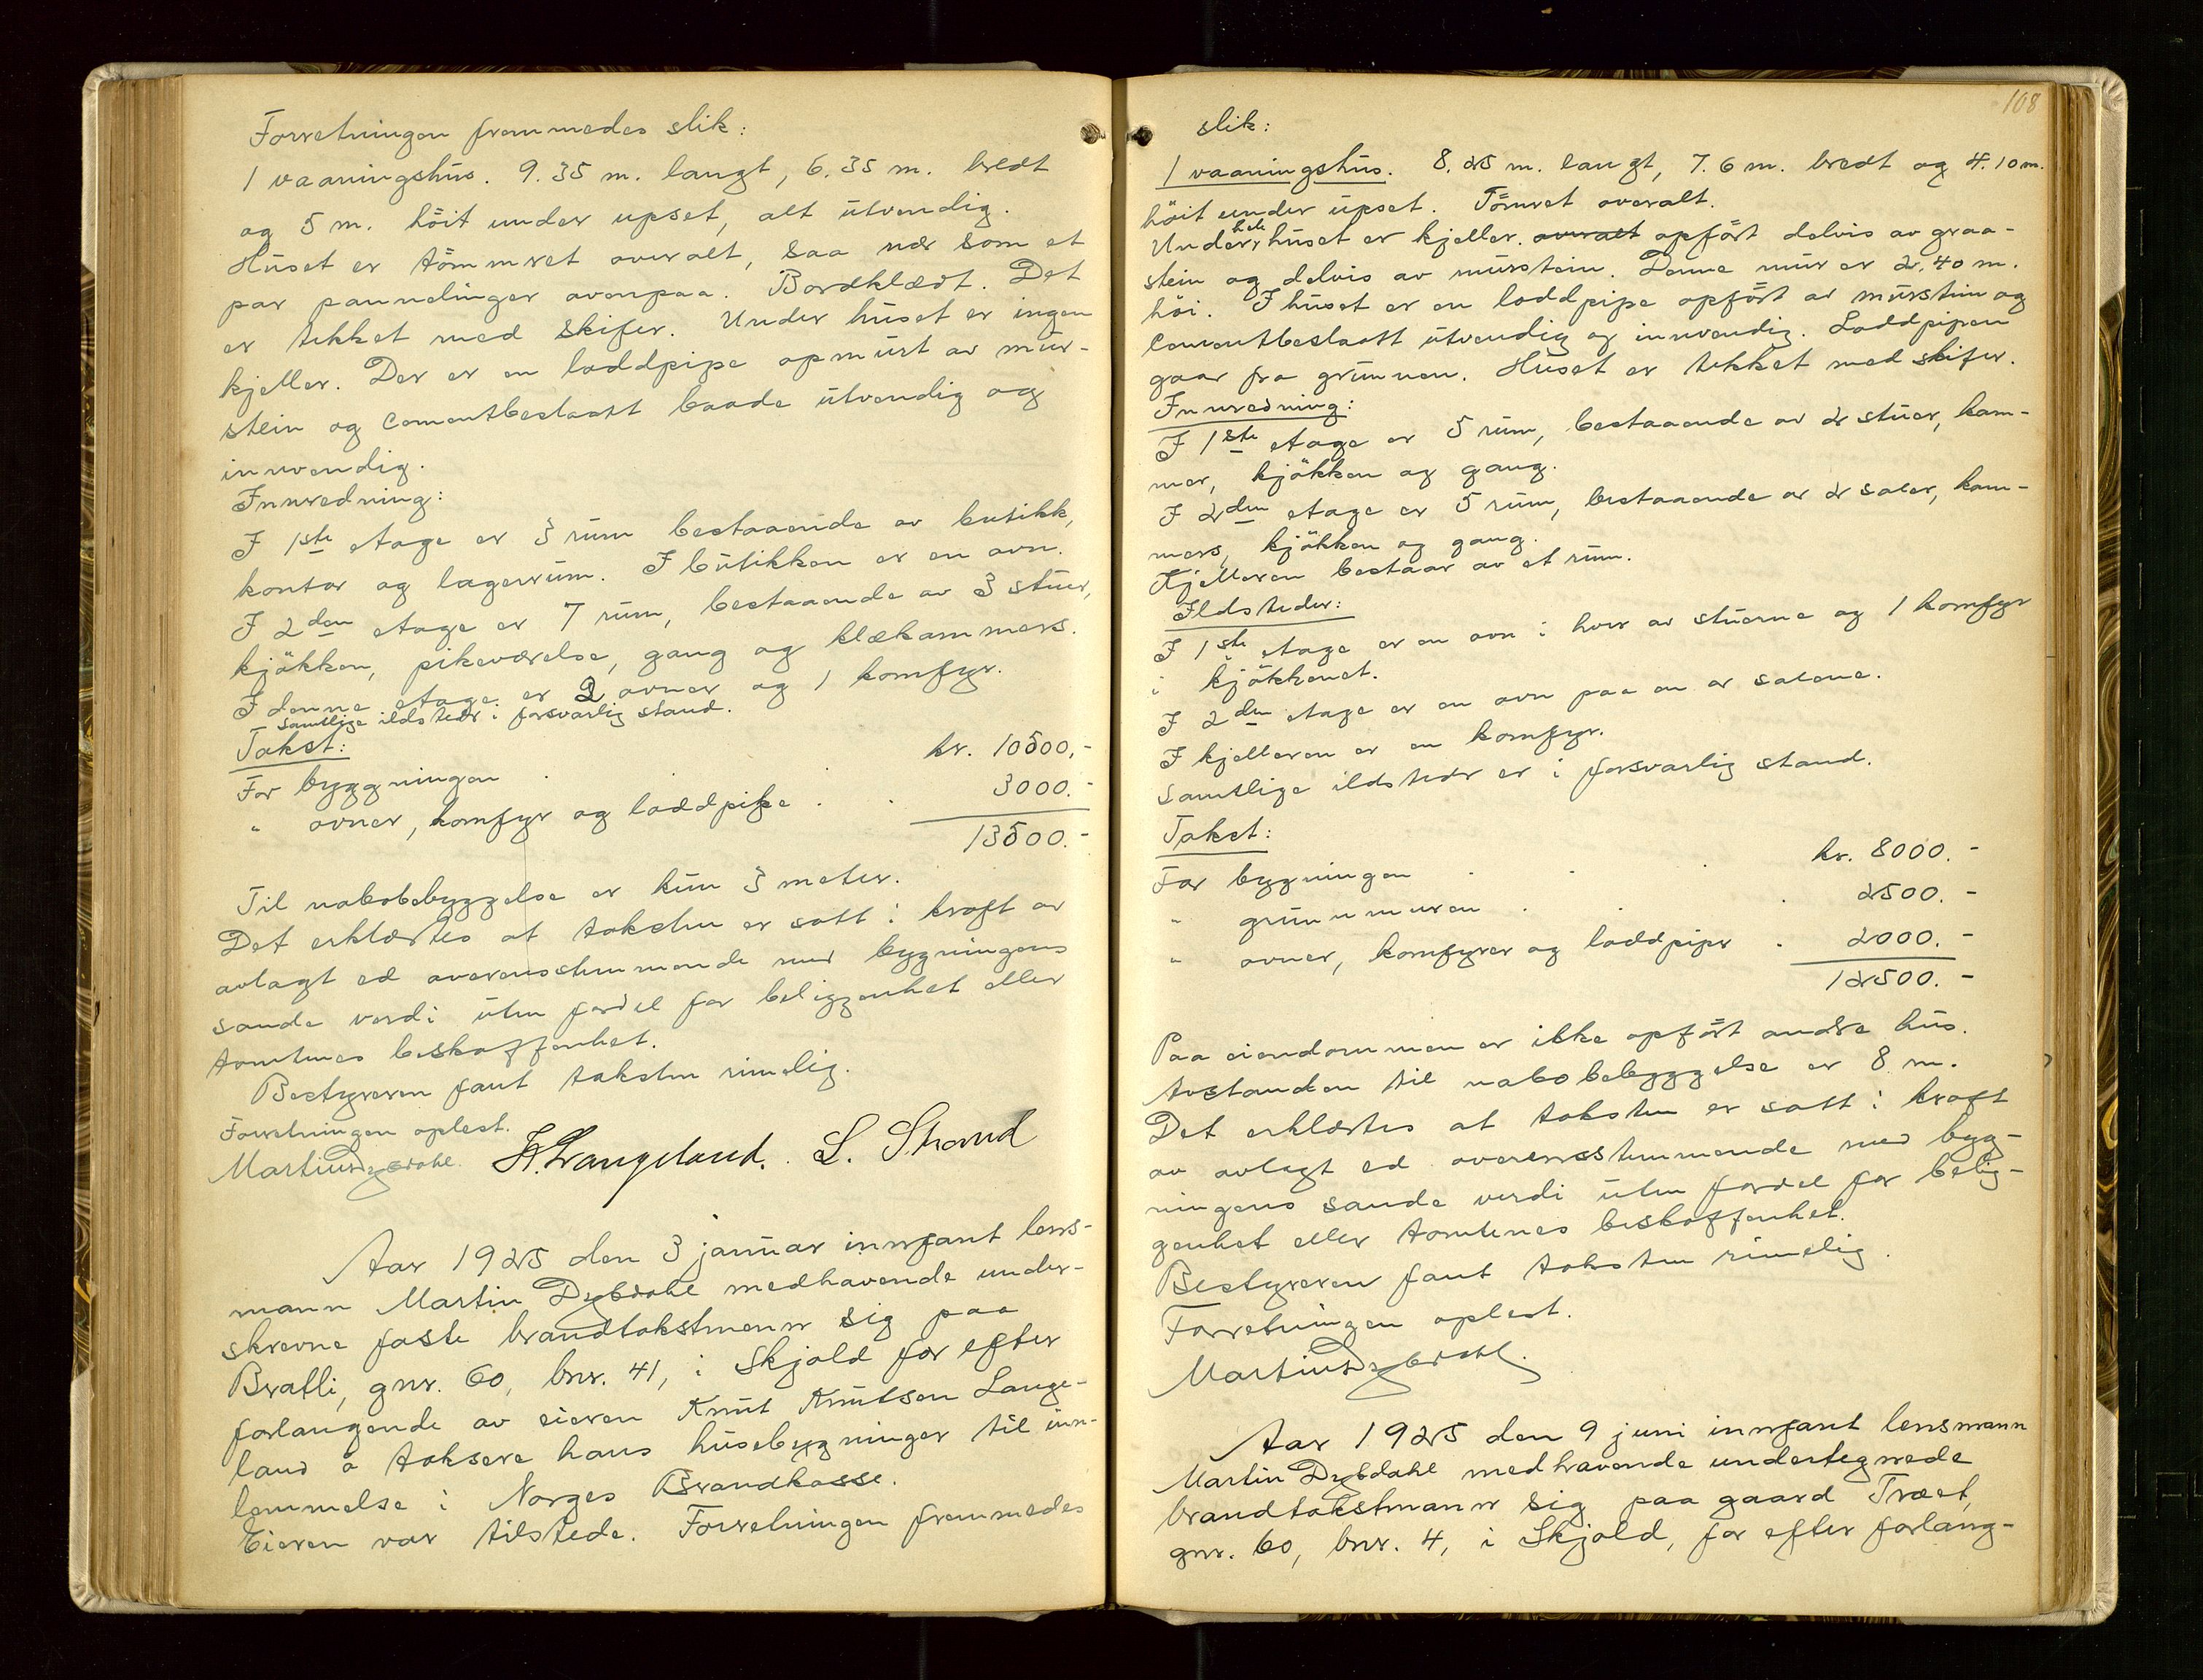 Forretningen fremmedes slik:
1 vaaningshus. 9.35 m. langt, 6.35 m. bredt
og 5 m. höit under upset, alt utvendig.
Huset er tömmret overalt, saa nær som et
par pannelinger ovenpaa. Bordklædt. Det
er tekket med skifer. Under huset er ingen
kjeller. Der er en loddpipe opmurt av mur-
stein og cementbeslaatt baade utvendig og
innvendig.
Innredning:
I 1ste etage er 3 rum bestaaende av butikk,
kontor og lagerrum. I butikken er en ovn.
I 2den etage er 7 rum, bestaaende av 3 stuer,
kjökken, pikeværelse, gang og klækammers.
I denne etage er 2 ovner og 1 komfyr.
Samtlige ildsteder i forsvarlig stand.
Takst:
For byggningen . kr. 10500,-
" ovner, komfyr og loddpipe . . 3000.-
13500.-
Til nabobebyggelse er kun 3 meter.
Det erklærtes at taksten er satt i kraft av
avlagt ed overensstemmende med bygningens
sande verdi uten fordel for beliggenhet eller
tomtenes beskaffenhet.
Bestyreren fant taksten rimelig.
Forretningen oplest.
Martin Dybdahl. K. Langeland. L. Strand
Aar 1925 den 3 januar innfant lens-
mann Martin Dybdahl medhavende under-
skrevne faste brandtakstmenn sig paa
Bratli, gnr. 60, bnr. 41, i Skjold for efter
forlangende av eieren Knut Knutsen Lange-
land å taksere hans husebygninger til inn-
lemmelse i Norges Brandkasse.
Eieren var tilstede. Forretningen fremmedes
108
slik:
1 vaaningshus. 8.25 m. langt, 7.6 m. bredt og 4.10 m.
höit under upset. Tömret overalt.
Under hele huset er kjeller. overalt opfört delvis av graa-
stein og delvis av murstein. Denne mur er 2,40 m.
höi. I huset er en loddpipe opfört av murstein og
cementbeslaatt utvendig og innvendig. Loddpipen
gaar fra grunnen. Huset er tekket med skifer.
Innredning:
I 1ste etage er 5 rum, bestaaende av 2 stuer, kam-
mer, kjökken og gang.
I 2den etage er 5 rum, bestaaende av 2 saler, kam-
mers, kjökken og gang.
Kjelleren bestaar av et rum.
Ildsteder:
I 1ste etage er en ovn i hver av stuerne og 1 komfyr
i kjökkenet.
I 2den etage er en ovn paa en av salene.
I kjelleren er en komfyr.
Samtlige ildsteder er i forsvarlig stand.
Takst:
For bygningen . . . kr. 8000.-
" grunnmuren . . . 2500.-
" ovner, komfyrer og loddpiper . 2000.-
12500.-
Paa eiendommen er ikke opfört andre hus.
Avstanden til nabobebyggelse er 8 m.
Det erklærtes at taksten er satt i kraft
av avlagt ed overensstemmende med byg-
ningens sande verdi uten fordel for belig-
genhet eller tomtenes beskaffenhet.
Bestyreren fant taksten rimelig.
Forretningen oplest.
Martin Dybdahl.
Aar 1925 den 9 juni innfant lensmann
Martin Dybdahl medhavende undertegnede
brandtakstmann sig paa gaard Træet,
gnr. 60, bnr. 4, i Skjold, for efter forlang-